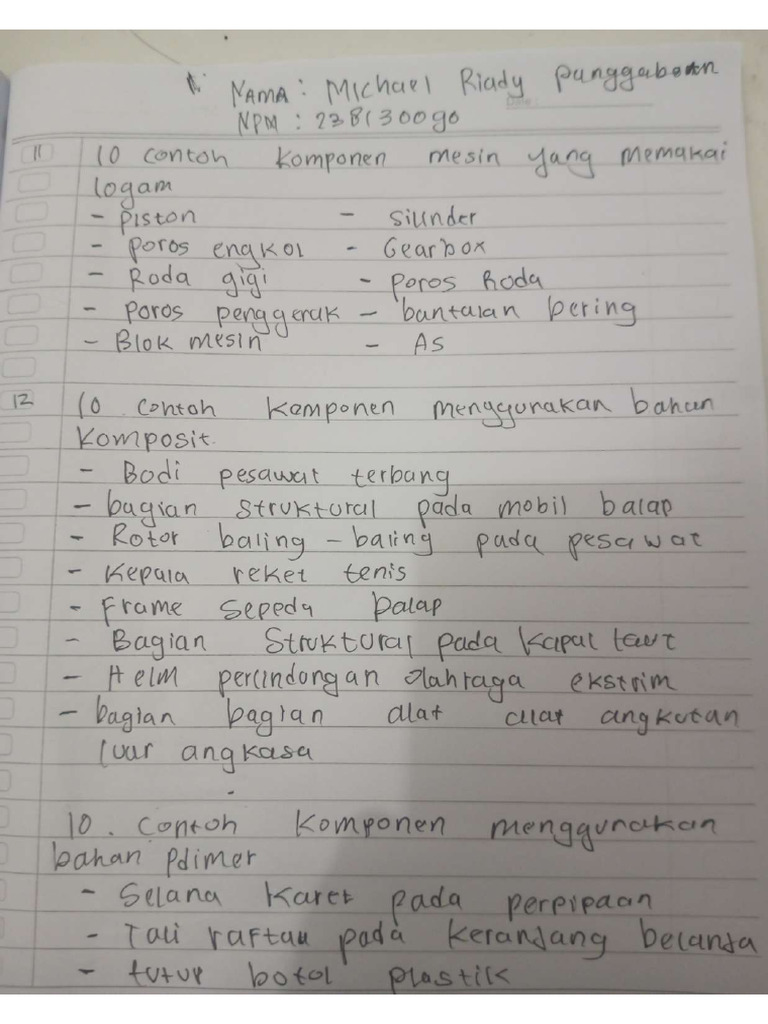 NAMA : Michael Riady Panggabean
NPM : 238130090
11 10 contoh komponen mesin yang memakai
logam
- Piston - Silinder
- Poros engkol - Gearbox
- Roda gigi - Poros Roda
- Poros penggerak - bantalan bering
- Blok mesin - AS
12 10 contoh komponen menggunakan bahan
komposit.
- Bodi pesawat terbang
- bagian struktural pada mobil balap
- Rotor baling-baling pada pesawat
- Kepala reket tenis
- Frame sepeda balap
- Bagian struktural pada kapal laut
- Helm perlindongan olahraga ekstrim
- bagian bagian alat alat angkutan
luar angkasa
10. contoh komponen menggunakan
bahan Polimer
- Selana karet pada perpipaan
- Tali raftau pada keranjang belanja
- tutup botol plastik